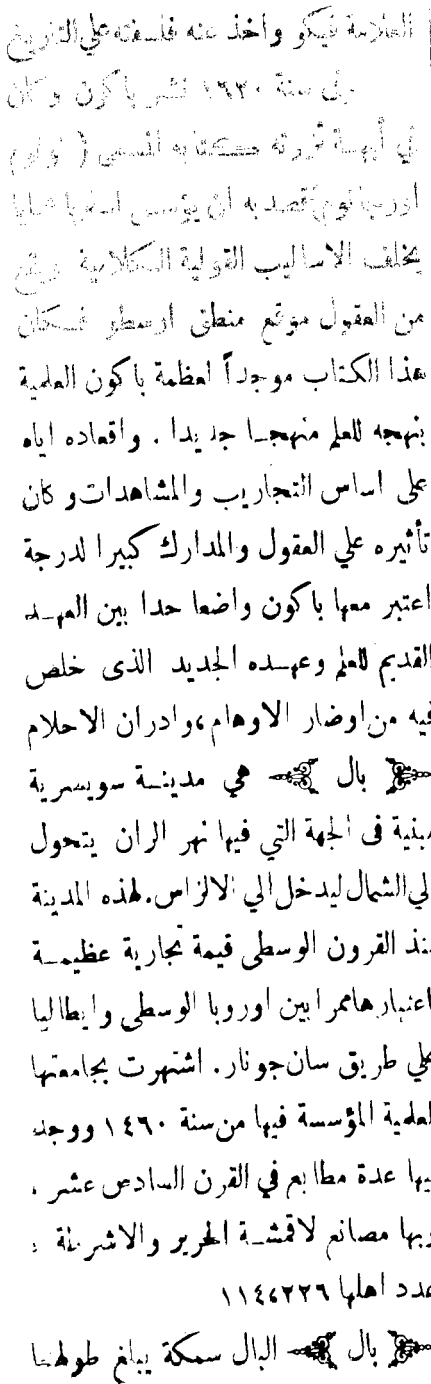 العلامة فيكو واخذ عنه فلسفته علي التاريخ
سنة ١٦٢٠ نشر باكون وكان
في
يخلف الاساليب القولية الكلامية
من العقول موقع منطق ارسطو فكان
هذا الكتاب موجداً لعظمة باكون العلمية
بنهجه للعلم منهجا جديدا . واقعاده اياه
على اساس التجاريب والمشاهدات وكان
تأثيره علي العقول والمدارك كبيرا لدرجة
اعتبر معها باكون واضعا حدا بين العهد
القديم للعلم وعهده الجديد الذى خلص
فيه من اوضار الاوهام، وادران الاحلام
﴿ بال ﴾ هي مدينة سويسرية
مبنية فى الجهة التي فيها نهر الران يتحول
لي الشمال ليدخل الي الالزاس. لهذه المدينة
منذ القرون الوسطى قيمة تجارية عظيمة
اعتبارها ممرا بين اوروبا الوسطى وايطاليا
علي طريق سان جونار. اشتهرت بجامعتها
لعلمية المؤسسة فيها من سنة ١٤٦٠ ووجد
يها عدة مطابع في القرن السادس عشر .
وبها مصانع لاقمشة الحرير والاشرطة .
عدد اهلها ١١٤،٢٢٦
﴿ بال ﴾ البال سمكة يبلغ طولها